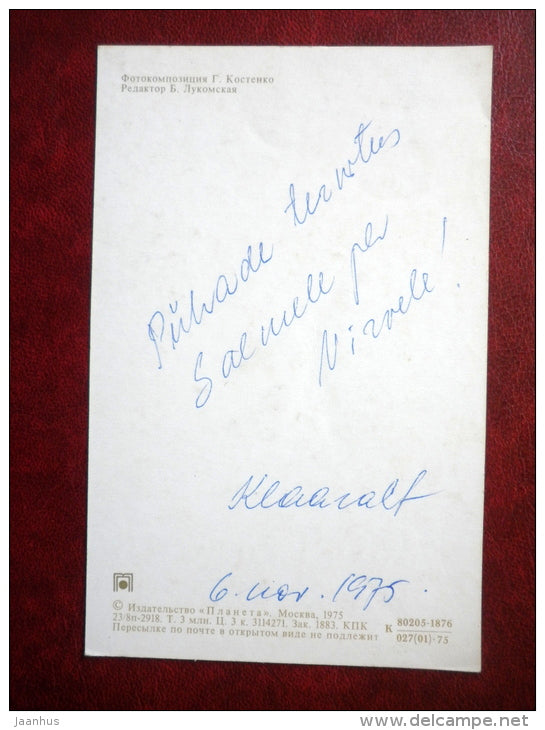 Фотокомпозиция Г. Костенко
Редактор Б. Лукомская
Pühade tervitus
Salmele per
Nirvele!
Klaaralt
6. nov. 1975.
© Издательство «Планета». Москва, 1975
23/8п-2918. Т. 3 млн. Ц. 3 к. 3114271. Зак. 1883. КПК
Пересылке по почте в открытом виде не подлежит
К 80205-1876
027(01)-75
jaanhus
www.delcampe.net